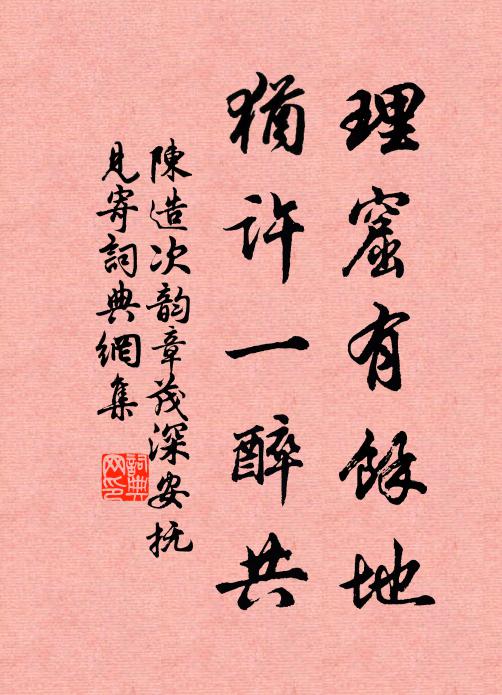 理窟有餘地
猶许一醉共
陳造次韵章茂深安抚
見寄詞典網集
詞典网印